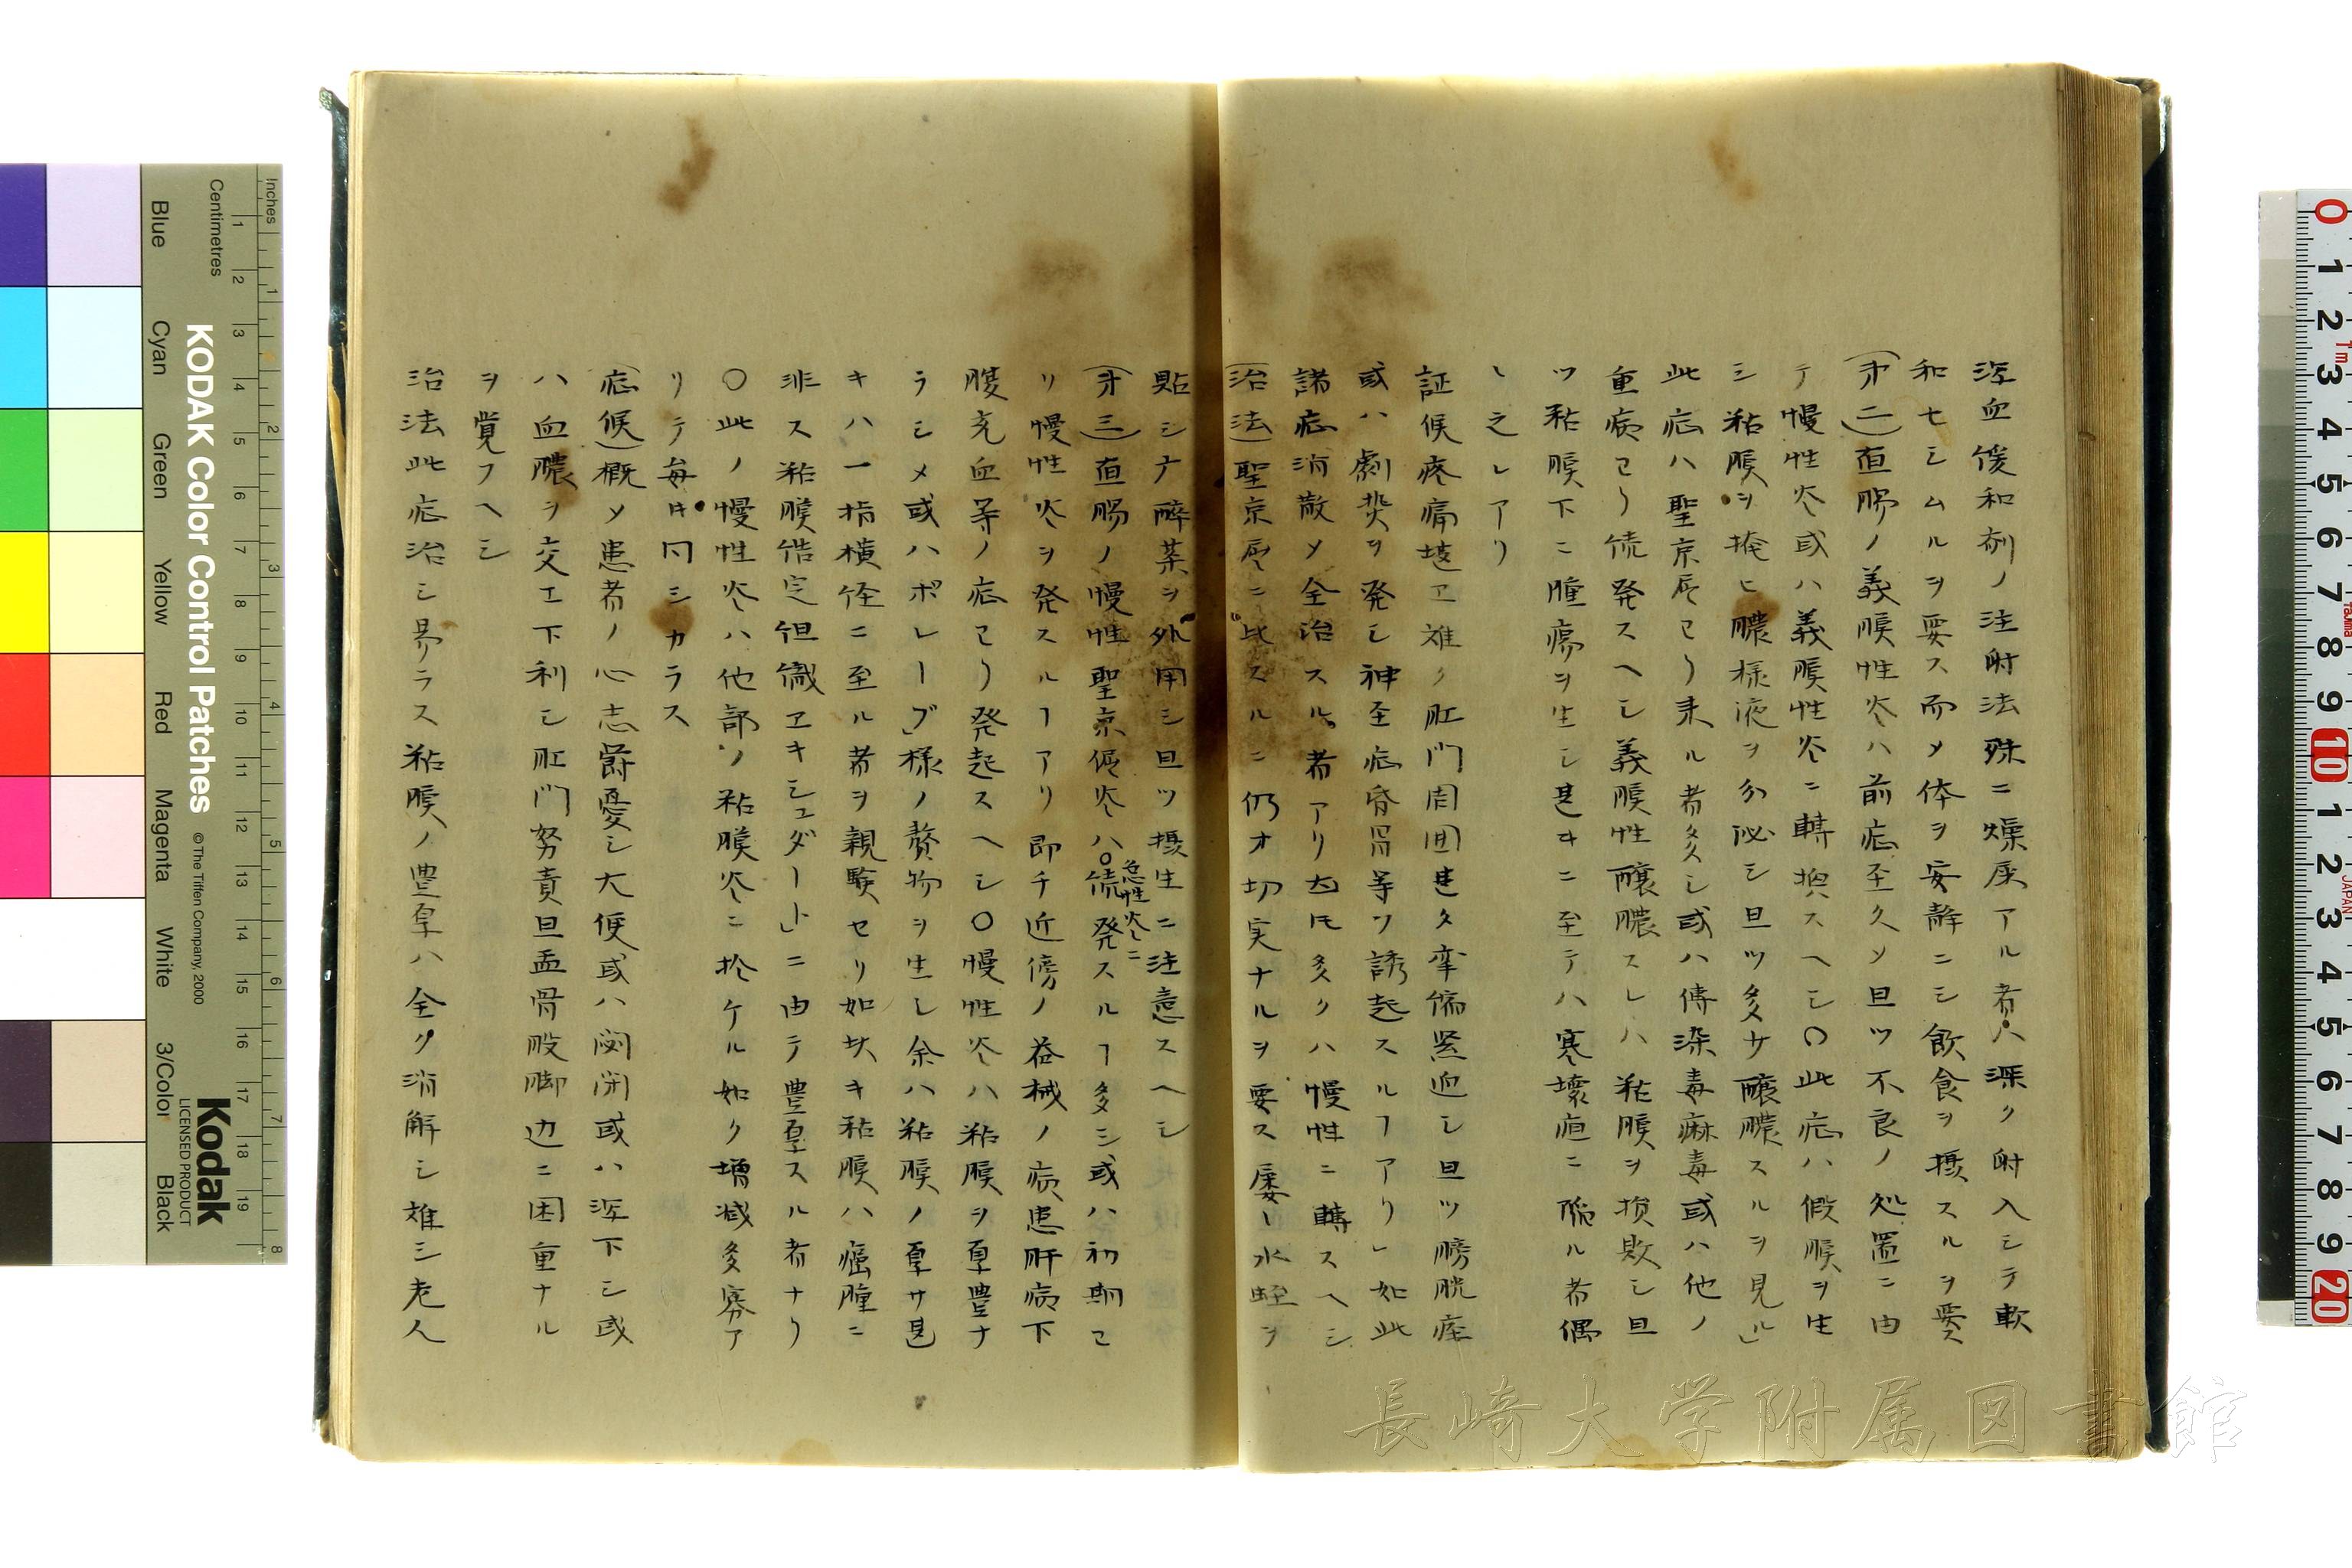 泻血緩和剤ノ注射法殊ニ燥屎アル者ハ深ク射入シテ軟
和セシムルヲ要ス而メ体ヲ安静ニシ飲食ヲ摂スルヲ要ス
(才二)直腸ノ義膜性炎ハ前症至久メ且ツ不良ノ処置ニ由
テ慢性炎或ハ義膜性炎ニ轉換スヘシ〇此症ハ假膜ヲ生
シ粘膜ヲ掩ヒ膿様液ヲ分泌シ且ツ多少醸膿スルヲ見ル」
此症ハ聖京尻ヨリ来ル者多シ或ハ傳染毒麻毒或ハ他ノ
重病ヨリ続発スヘシ義膜性醸膿スレハ粘膜ヲ損敗シ且
ツ粘膜下ニ腫瘍ヲ生シ甚キニ至テハ寒壊疽ニ陥ル者偶
〱之レアリ
証候疼痛堪エ難ク肛門周囲甚タ挛縮緊迫シ且ツ膀胱痙
或ハ劇熱ヲ発シ神至症昏冒等ヲ誘起スルヿアリ〱如此
諸症消散メ全治スル者アリ尤モ多クハ慢性ニ轉スヘシ
(治法)聖京尻ニ比スルニ仍才切実ナルヲ要ス屡〱水蛭ヲ
貼シ广醉薬ヲ外用シ且ツ摂生ニ注意スヘシ
(才三)直腸ノ慢性聖京偃炎ハ〇続発スルヿ多シ或ハ初期ヨ
急性炎ニ
リ慢性炎ヲ発スルヿアリ即チ近傍ノ器械ノ病患肝病下
腹充血等ノ症ヨリ発起スヘシ〇慢性炎ハ粘膜ヲ厚豊ナ
ラシメ或ハポレーブ」様ノ贅物ヲ生シ余ハ粘膜ノ厚サ
キハ一指横径ニ至ル者ヲ親験セリ如此キ粘膜ハ癌腫ニ
非ス粘膜
エキシュダート」ニ由テ豊厚スル者ナリ
〇此ノ慢性炎ハ他部ノ粘膜炎ニ於ケル如ク増減多寡ア
リテ毎ㇳキ同シカラス
(症候)概メ患者ノ心志爵憂シ大便或ハ閟闭或ハ泻下シ或
ハ血膿ヲ交エ下利シ肛門努責且盂骨股脚辺ニ困重ナル
ヲ覚フヘシ
治法此症治シ易ラス粘膜ノ豊厚ハ全ク消解シ難シ老人
長崎大学附属図書館
KODAK Color Control Patches
© The Tiffen Company, 2000
Kodak
LICENSED PRODUCT
Inches
Centimetres
Blue
Cyan
Green
Yellow
Red
Magenta
White
3/Color
Black